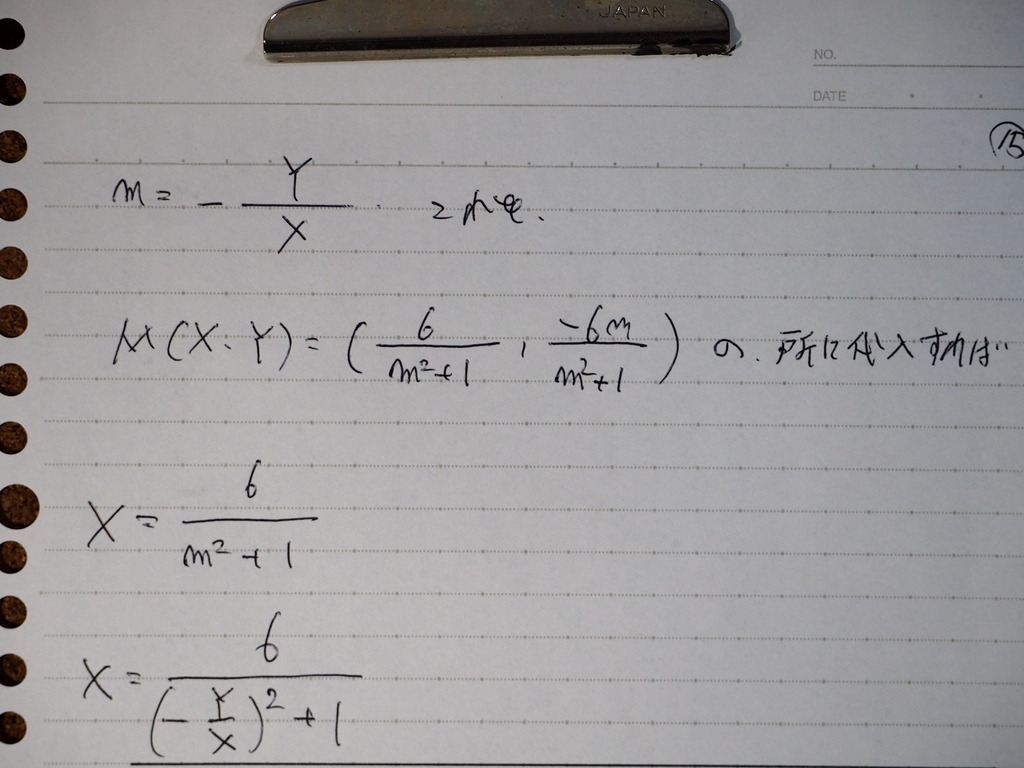 JAPAN
NO.
DATE
⑮
m = - Y/X . これを.
M(X, Y) = ( 6/(m²+1) , -6m/(m²+1) ) の. 所に代入すれば
X = 6/(m²+1)
X = 6/((-Y/X)²+1)